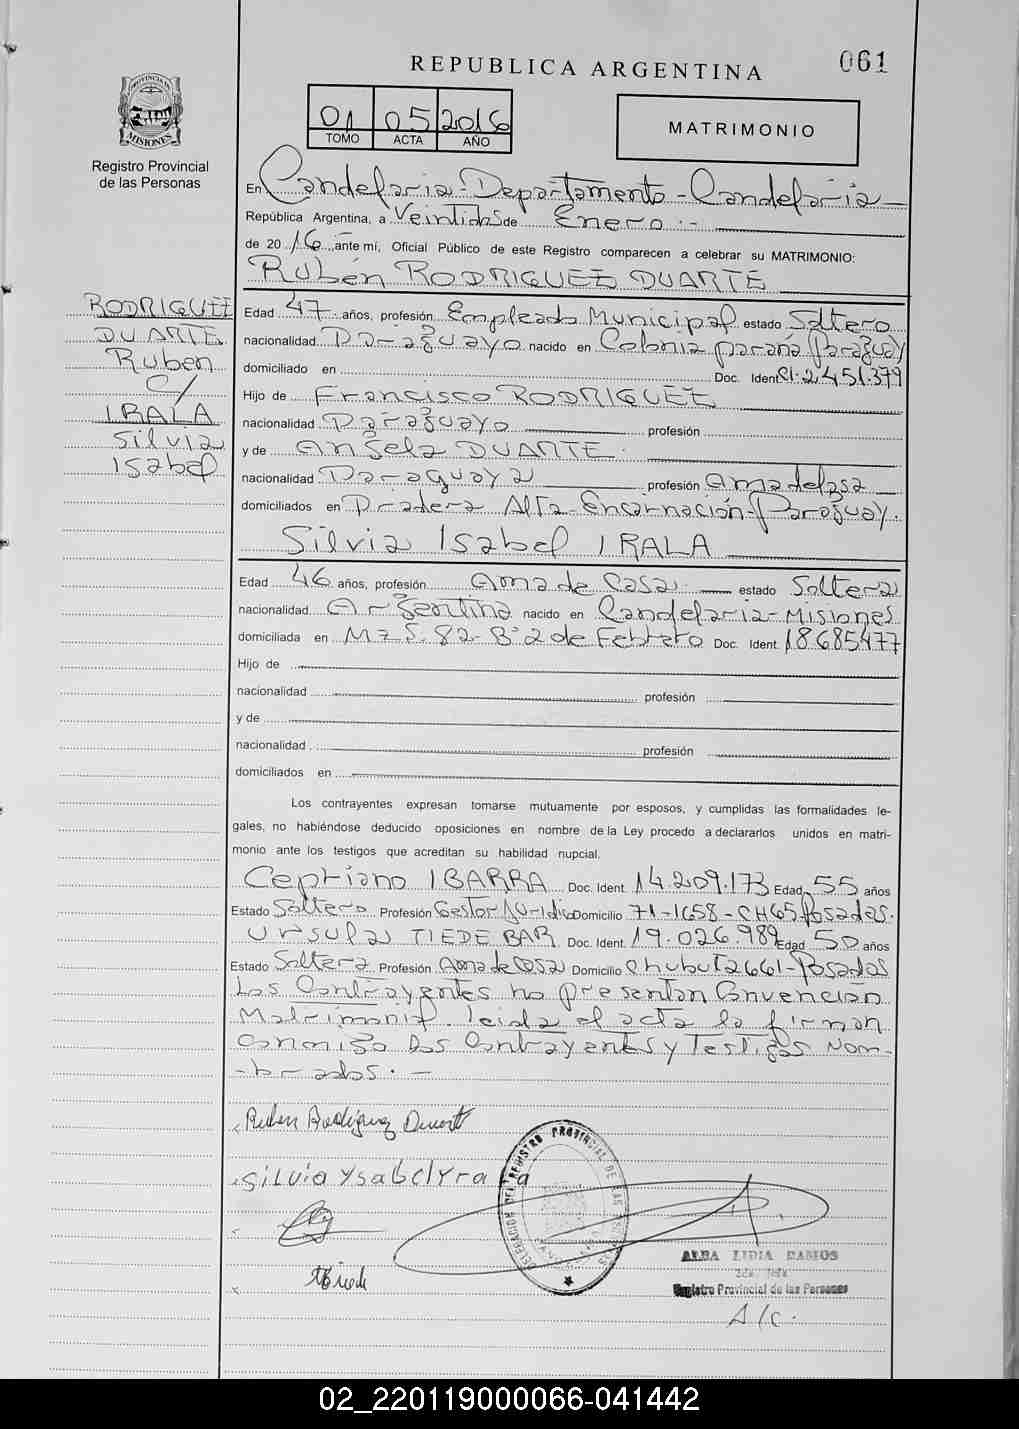 REPUBLICA ARGENTINA
061
PROVINCIA DE MISIONES
Registro Provincial
de las Personas
01 05 2016
TOMO ACTA AÑO
MATRIMONIO
En Candelaria - Departamento - Candelaria -
República Argentina, a Veintidos de Enero . -
de 20 16, ante mí, Oficial Público de este Registro comparecen a celebrar su MATRIMONIO:
Rubén RODRIGUEZ DUARTE
RODRIGUEZ
DUARTE
Ruben
c/
IRALA
Silvia
Isabel
Edad 47 años, profesión Empleado Municipal estado Soltero
nacionalidad Paraguayo nacido en Colonia paraná Paraguay
domiciliado en Doc. Ident. CI. 2.451.379
Hijo de Francisco RODRIGUEZ
nacionalidad Paraguayo profesión
y de Angela DUARTE
nacionalidad Paraguaya profesión Ama de Casa
domiciliados en Pradera Alta - Encarnación - Paraguay.
Silvia Isabel IRALA
Edad 46 años, profesión Ama de Casa estado Soltera
nacionalidad Argentina nacido en Candelaria - Misiones
domiciliada en Mz S. 82 - B° 2 de Febrero Doc. Ident. 18685477
Hijo de
nacionalidad profesión
y de
nacionalidad profesión
domiciliados en
Los contrayentes expresan tomarse mutuamente por esposos, y cumplidas las formalidades le-
gales, no habiéndose deducido oposiciones en nombre de la Ley procedo a declararlos unidos en matri-
monio ante los testigos que acreditan su habilidad nupcial.
Cepriano IBARRA Doc. Ident. 14.209.173 Edad 55 años
Estado Soltero Profesión Gestor Juridico Domicilio 71-1658-CH65 Posadas.
Ursula TIEDE BAR Doc. Ident. 19.026.989 Edad 50 años
Estado Soltera Profesión Ama de Casa Domicilio Chubut 2661 - Posadas
Los Contrayentes no presentan Convención
Matrimonial. leida el acta la firman
Conmigo los Contrayentes y Testigos Nom-
-brados. -
Ruben Rodriguez Duarte
Silvia Ysabel Yrala
DELEGACION DEL REGISTRO PROVINCIAL DE LAS PERSONAS
ALBA LIDIA RAMOS
Registro Provincial de las Personas
A/C.
02_220119000066-041442